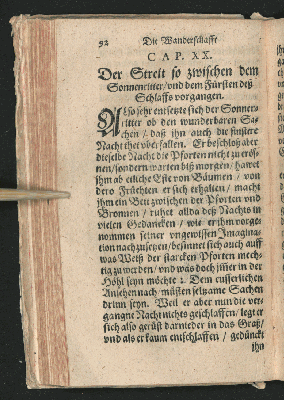 92 Die Wanderschafft
CAP. XX.
Der Streit so zwischen dem
Sonnenritter/vnd dem Fürsten deß
Schlaffs vorgangen.
Also sehr entsetzte sich der Sonnen-
ritter ob den wunderbaren Sa-
chen / daß ihn auch die finstere
Nacht thet vberfallen. Er beschloß aber
dieselbe Nacht die Pforten nicht zu eröf-
nen/sondern warten biß morgen/hawet
ihm ab etliche Este von Bäumen / von
dero Früchten er sich erhalten / macht
ihm ein Bett zwischen der Pforten vnd
Bronnen / ruhet allda deß Nachts in
vielen Gedancken / wie er ihm vorge-
nommen seiner vngewissen Imagina-
tion nachzusetzen/besinnet sich auch auff
was Weiß der starcken Pforten mech-
tig zu werden/vnd was doch jmmer in der
Höhl seyn möchte: Dem eusserlichen
Ansehen nach müsten seltzame Sachen
drinn seyn. Weil er aber nun die ver-
gangne Nacht nichts geschlaffen/legt er
sich also gerüst darnieder in das Graß/
vnd als er kaum entschlaffen / gedünckt
ihn